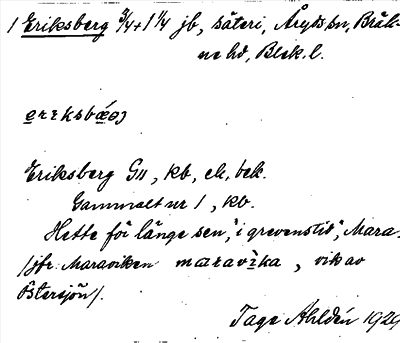 1 Eriksberg 3/4+1 1/4 jb, säteri, Åryds sn, Bräk-
ne hd, Blek. l.
Eriksberg Gu, kb, ek, bek.
Gammalt nr 1, kb.
Hette för länge sen, "i grevenstit", Mara.
/jfr Maraviken maravika, vik av
Östersjön/.
Tage Ahldén 1929